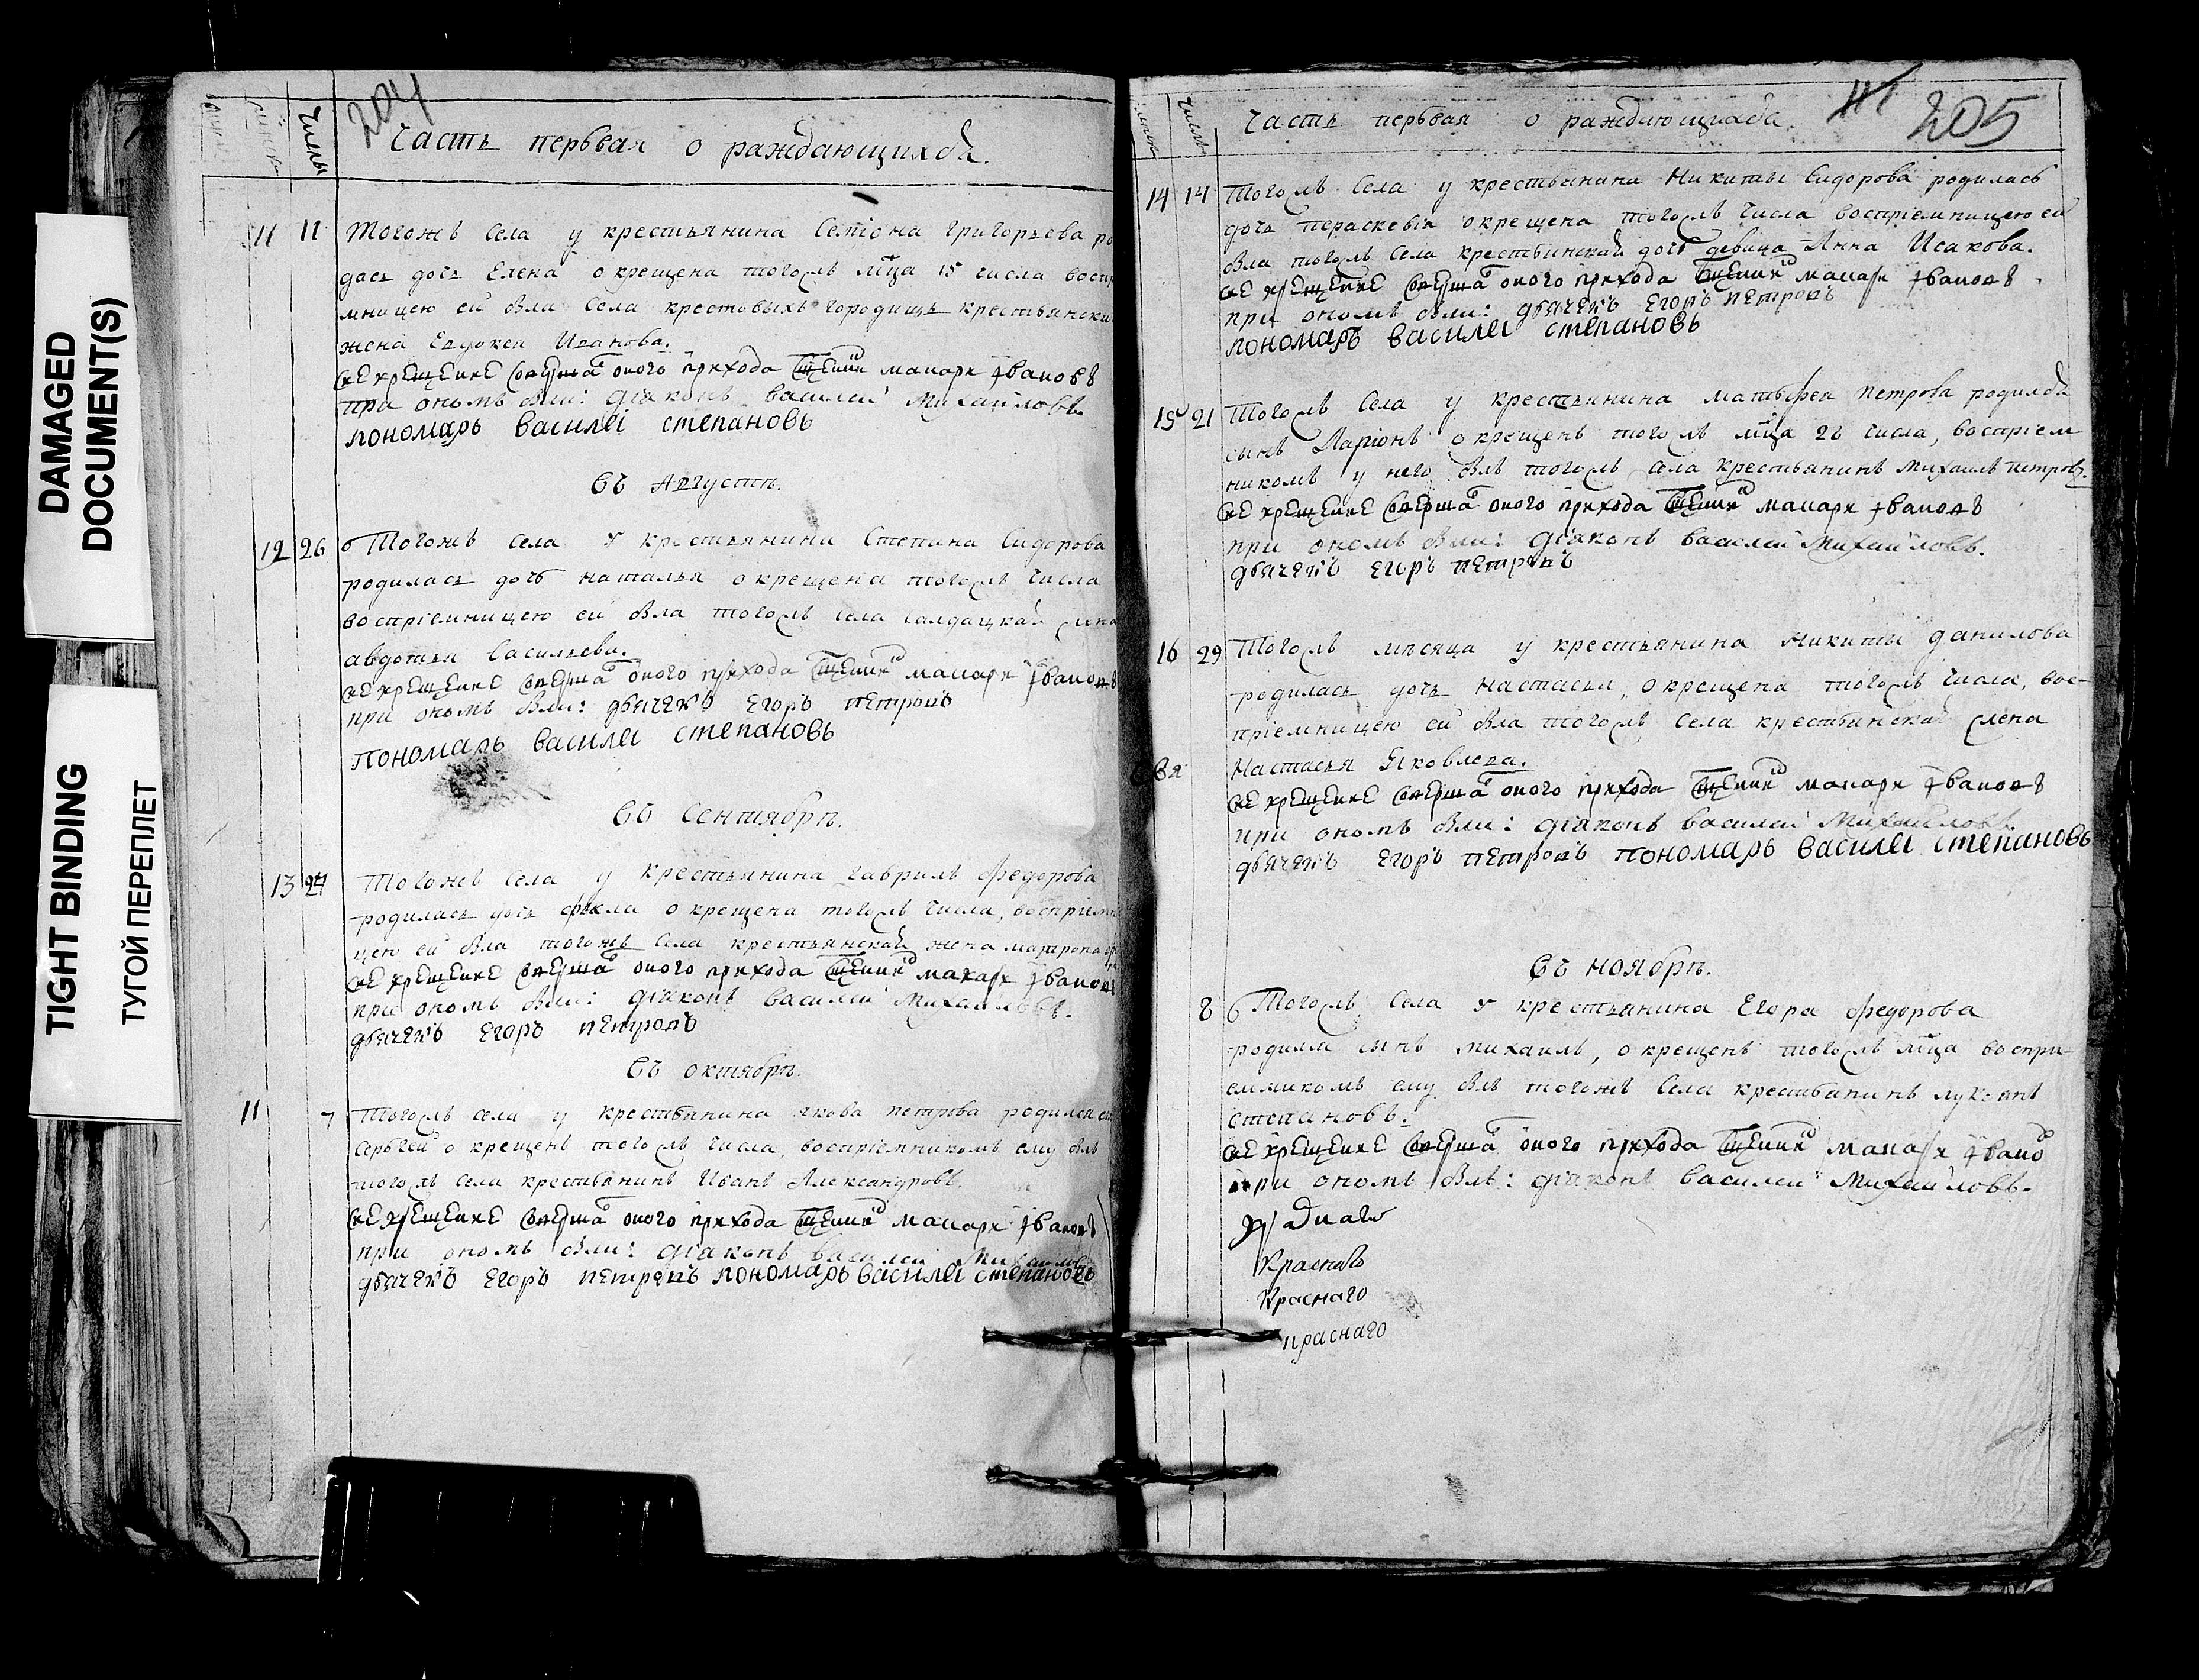 DAMAGED
DOCUMENT(S)
TIGHT BINDING
ТУГОЙ ПЕРЕПЛЕТ
204
числы
Часть первая о раждающихся.
11 11 Тогожъ села у крестьянина Семиона Григорьева ро
дась дочь Елена окрещена тогожъ мца 15 числа воспр
мницею ей была села крестовыхъ городищъ крестьянска
жена Евдокеи Иванова.
сие крещение оного прихода макари Iвановъ
при ономъ были: дiаконъ василей Михайловъ.
пономарь василеi степановъ
Въ Августѣ.
12 26 Тогожъ села у крестьянина Степана Сидорова
родилась дочь наталья окрещена тогожъ числа
воспрiемницею ей была тогожъ села салдацкая жена
авдотья Васильева.
сие крещение оного прихода макари Iвановъ
при ономъ были: дьячекъ Егоръ петровъ
пономарь василеi степановъ
Въ Сентябрѣ.
13 27 Тогожъ села у крестьянина гаврилы Федорова
родилась дочь фекла окрещена тогожъ числа, воспрiемн
цею ей была тогожъ села крестьянской жена матрона
сие крещение оного прихода макари Iвановъ
при ономъ были: дiаконъ василей Михайловъ.
дьячекъ Егоръ петровъ
Въ октябрѣ.
11 7 Тогожъ села у крестьянина якова петрова родился
Сергей окрещенъ тогожъ числа, воспрiемникомъ ему былъ
тогожъ села крестьянинъ Иванъ Александровъ.
сие крещение оного прихода макари Iвановъ
при ономъ были: дiаконъ василей Михайловъ
дьячекъ Егоръ петровъ пономарь василеi степановъ
205
числы
Часть первая о раждающихся.
14 14 Тогожъ села у крестьянина Никиты Сидорова родилась
дочь пераскевiя окрещена тогожъ числа воспрiемницею ей
была тогожъ села крестьянской дочь девица Анна Исакова.
сие крещение оного прихода макари Iвановъ
при ономъ были: дьячекъ Егоръ петровъ
пономаръ василеi степановъ
15 21 Тогожъ села у крестьянина матвѣея петрова родился
сынъ Ларiонъ окрещенъ тогожъ мца 26 числа, воспрiем
никомъ у него былъ тогожъ села крестьянинъ михаилъ петровъ.
сие крещение оного прихода макари Iвановъ
при ономъ были: дiаконъ василей Михайловъ.
дьячекъ Егоръ петровъ
16 29 Тогожъ месяца у крестьянина никиты данилова
родилась дочь Настасья, окрещена тогожъ числа, вос-
прiемницею ей была тогожъ села крестьянская жена
Настасья Яковлева.
сие крещение оного прихода макари Iвановъ
при ономъ были: дiаконъ василей Михайловъ.
дьячекъ Егоръ петровъ пономарь василеi степановъ
Въ ноябрѣ.
8 6 Тогожъ села у крестьянина Егора Федорова
родился сынъ михаилъ, окрещенъ тогожъ мца воспри-
емникомъ ему былъ тогожъ села крестьянинъ лукоянъ
степановъ.
сие крещение оного прихода макари Iвано
при ономъ былъ: дiаконъ василей Михайловъ.
Краснаго
Краснаго
краснаго